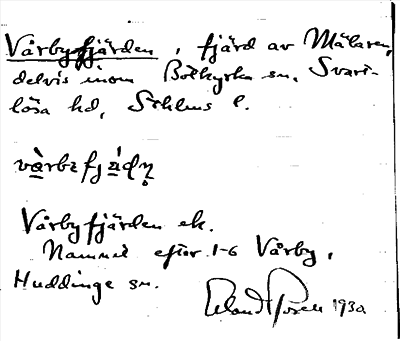 Vårbyfjärden, fjärd av Mälaren,
delvis inom Botkyrka sn, Svart-
lösa hd, Sthlms l.
Vårbyfjärden ek.
Namnet efter 1-6 Vårby,
Huddinge sn.
Erland Rosell 1930